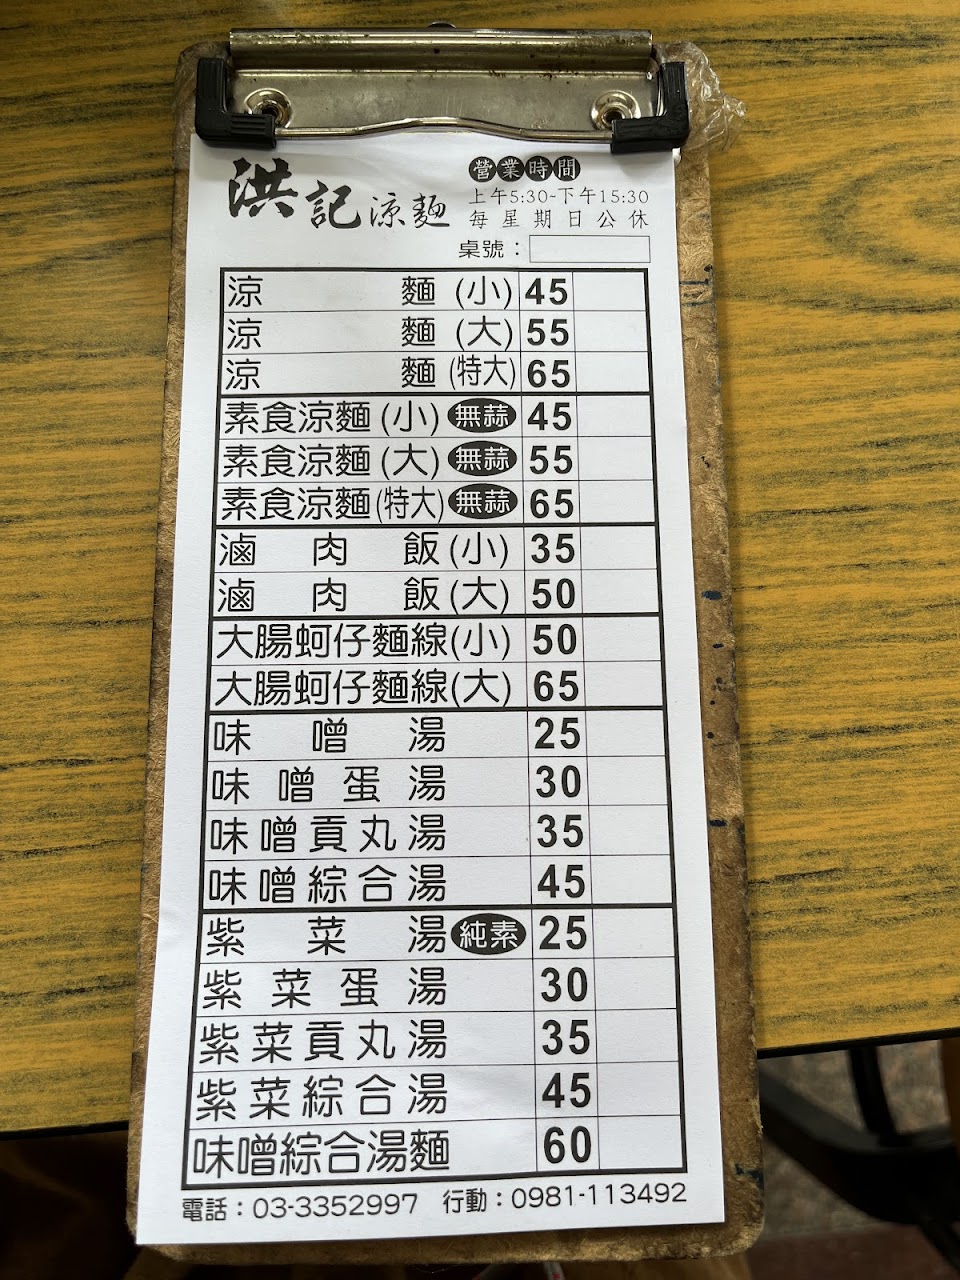 洪記涼麵
營業時間
上午5:30~下午15:30
每星期日公休
桌號：
涼麵(小) 45
涼麵(大) 55
涼麵(特大) 65
素食涼麵(小) 無蒜 45
素食涼麵(大) 無蒜 55
素食涼麵(特大) 無蒜 65
滷肉飯(小) 35
滷肉飯(大) 50
大腸蚵仔麵線(小) 50
大腸蚵仔麵線(大) 65
味噌湯 25
味噌蛋湯 30
味噌貢丸湯 35
味噌綜合湯 45
紫菜湯 純素 25
紫菜蛋湯 30
紫菜貢丸湯 35
紫菜綜合湯 45
味噌綜合湯麵 60
電話：03-3352997 行動：0981-113492